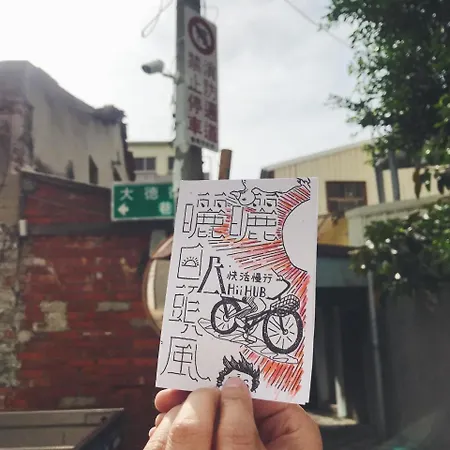 消防通道
禁止停車
大德
巷
曬曬
白頭風
快活慢行
Hii HUB